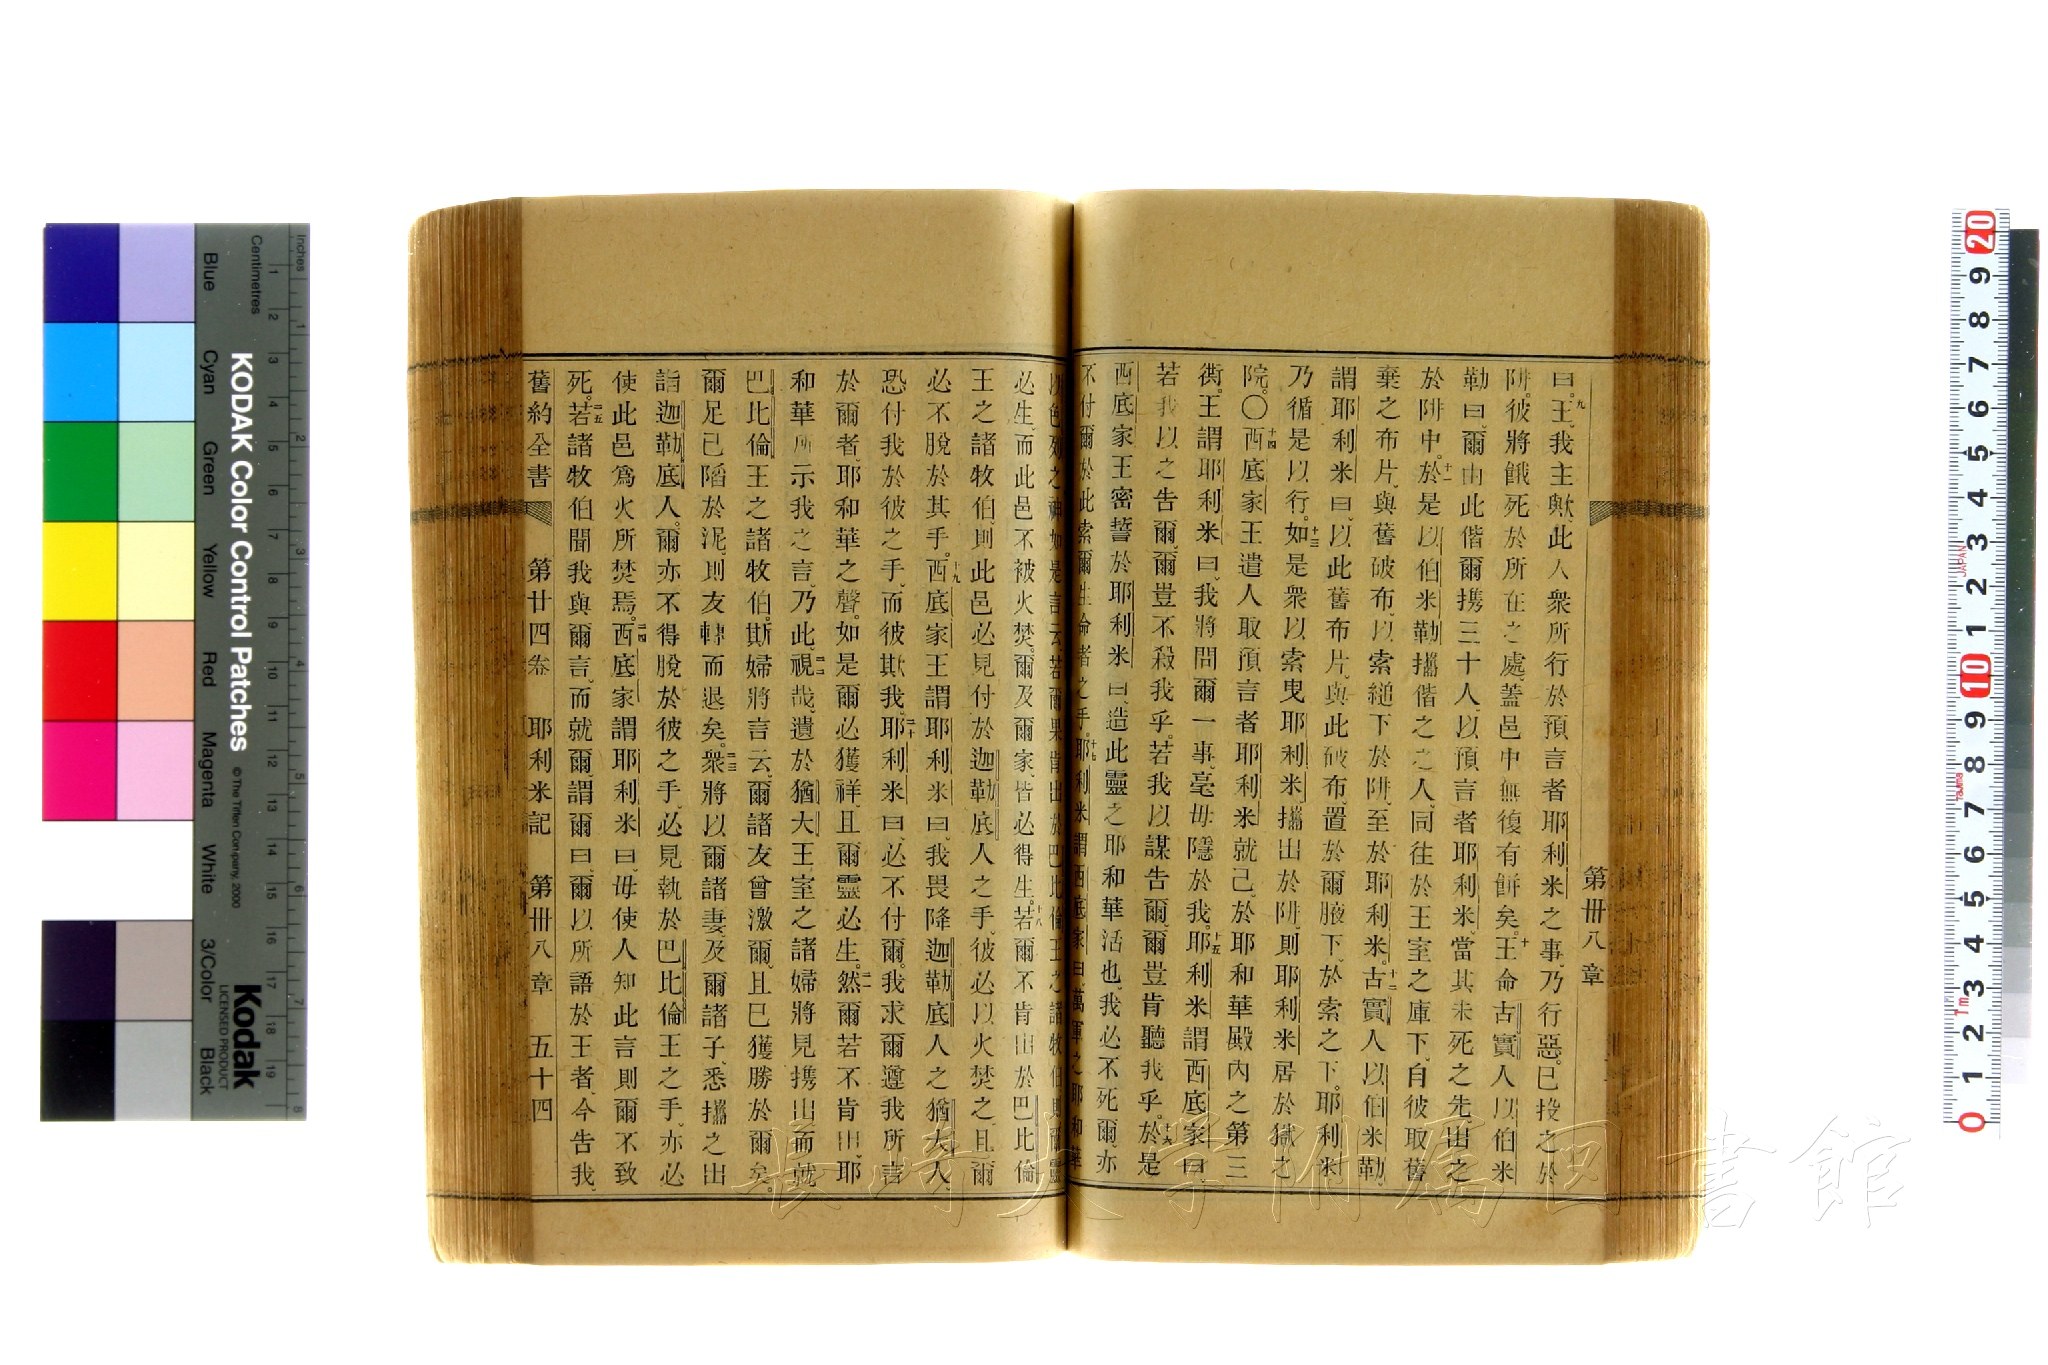 第卌八章
曰、九王我主歟、此人衆所行於預言者耶利米之事、乃行惡。已投之於
阱。彼將餓死於所在之處、蓋邑中無復有餅矣。十王命古實人以伯米
勒曰、爾由此偕爾攜三十人、以預言者耶利米、當其未死之先出之
於阱中。十一於是以伯米勒攜偕之之人、同往於王室之庫下、自彼取舊
棄之布片、與舊破布、以索縋下於阱、至於耶利米。十二古實人以伯米勒、
謂耶利米曰、以此舊布片、與此破布、置於爾腋下、於索之下、耶利米
乃循是以行。十三如是衆以索曳耶利米、攜出於阱、則耶利米居於獄之
院。〇十四西底家王遣人取預言者耶利米就己、於耶和華殿內之第三
衖。王謂耶利米曰、我將問爾一事、毫毋隱於我。十五耶利米謂西底家曰、
若我以之告爾、爾豈不殺我乎。若我以謀告爾、爾豈肯聽我乎。十六於是
西底家王密誓於耶利米曰、造此靈之耶和華活也、我必不死爾、亦
不付爾於此索爾生命者之手。十七耶利米謂西底家曰、萬軍之耶和華
以色列之神如是言云、若爾果肯出於巴比倫王之諸牧伯、則爾靈
必生、而此邑不被火焚。爾及爾家、皆必得生。十八若爾不肯出於巴比倫
王之諸牧伯、則此邑必見付於迦勒底人之手、彼必以火焚之、且爾
必不脫於其手。十九西底家王謂耶利米曰、我畏降迦勒底人之猶大人、
恐付我於彼之手、而彼欺我。二十耶利米曰、必不付爾。我求爾遵我所言
於爾者、耶和華之聲。如是爾必獲祥、且爾靈必生。二一然爾若不肯出、耶
和華所示我之言、乃此。二二視哉、遺於猶大王室之諸婦將見攜出而就
巴比倫王之諸牧伯。斯婦將言云、爾諸友曾激爾、且已獲勝於爾矣。
爾足已陷於泥、則友轉而退矣。二三衆將以爾諸妻、及爾諸子、悉攜之出
詣迦勒底人。爾亦不得脫於彼之手、必見執於巴比倫王之手、亦必
使此邑爲火所焚焉。二四西底家謂耶利米曰、毋使人知此言則爾不致
死。二五若諸牧伯聞我與爾言、而就爾、謂爾曰、爾以所語於王者、今告我、
舊約全書 第廿四卷 耶利米記 第卌八章 五十四
長崎大学附属図書館
KODAK Color Control Patches
© The Tiffen Company, 2000
Kodak
LICENSED PRODUCT
Inches
Centimetres
Blue
Cyan
Green
Yellow
Red
Magenta
White
3/Color
Black